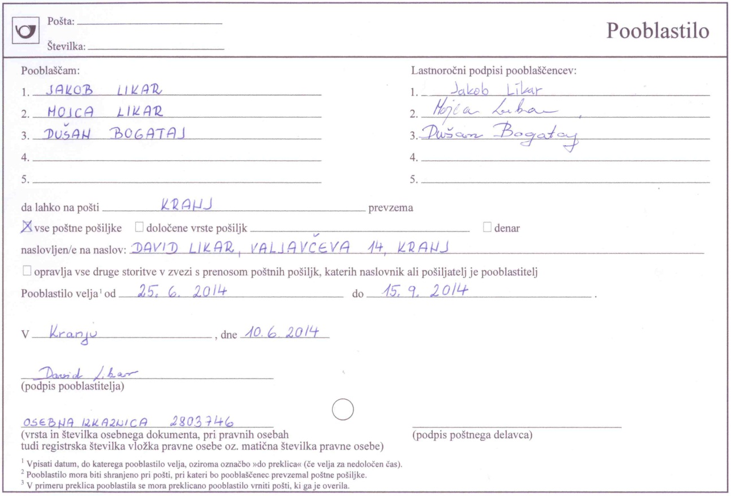 Pošta:
Številka:
Pooblastilo
Pooblaščam:
1. JAKOB LIKAR
2. MOJCA LIKAR
3. DUŠAN BOGATAJ
4.
5.
Lastnoročni podpisi pooblaščencev:
1. Jakob Likar
2. Mojca Likar
3. Dušan Bogataj
4.
5.
da lahko na pošti KRANJ prevzema
X vse poštne pošiljke določene vrste pošiljk denar
naslovljen/e na naslov: DAVID LIKAR, VALJAVČEVA 14, KRANJ
opravlja vse druge storitve v zvezi s prenosom poštnih pošiljk, katerih naslovnik ali pošiljatelj je pooblastitelj
Pooblastilo velja¹ od 25. 6. 2014 do 15. 9. 2014 .
V Kranju , dne 10.6.2014
David Likar
(podpis pooblastitelja)
OSEBNA IZKAZNICA 2803746
(vrsta in številka osebnega dokumenta, pri pravnih osebah
tudi registrska številka vložka pravne osebe oz. matična številka pravne osebe)
(podpis poštnega delavca)
¹ Vpisati datum, do katerega pooblastilo velja, oziroma označbo »do preklica« (če velja za nedoločen čas).
² Pooblastilo mora biti shranjeno pri pošti, pri kateri bo pooblaščenec prevzemal poštne pošiljke.
³ V primeru preklica pooblastila se mora preklicano pooblastilo vrniti pošti, ki ga je overila.